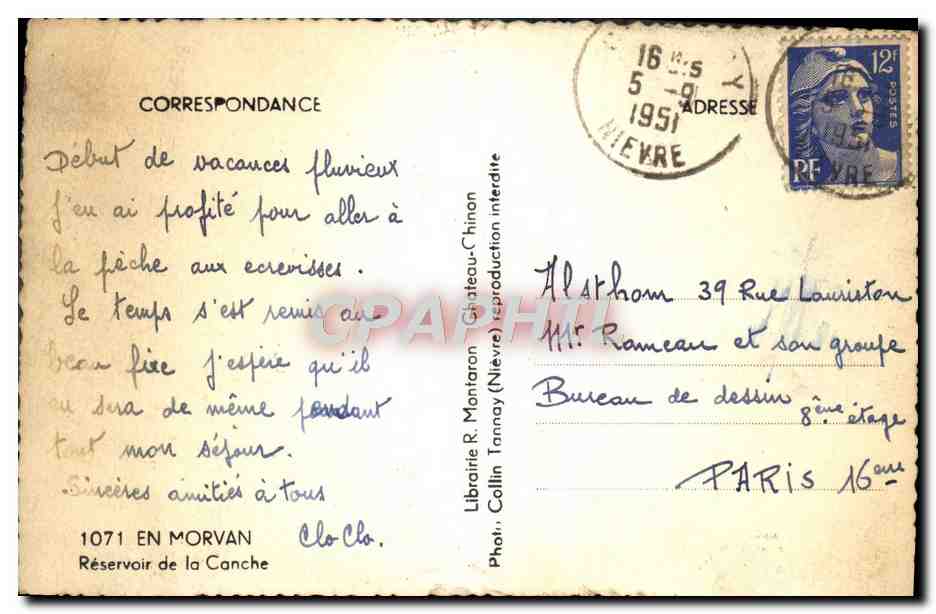 CORRESPONDANCE
Début de vacances pluvieux
j'en ai profité pour aller à
la pêche aux ecrevisses.
Le temps s'est remis au
beau fixe j'espère qu'il
en sera de même pendant
tout mon séjour.
Sincères amitiés à tous
Clo Clo.
1071 EN MORVAN
Réservoir de la Canche
Librairie R. Montaron - Chateau-Chinon
Photo Collin Tannay (Nièvre) reproduction interdite
16
5 -9
1951
NIEVRE
ADRESSE
12F
POSTES
RF
1951
VRE
Alsthom 39 Rue Lauriston
Mr Rameau et son groupe
Bureau de dessin
8ème étage
PARIS 16eme
CPAPHIL